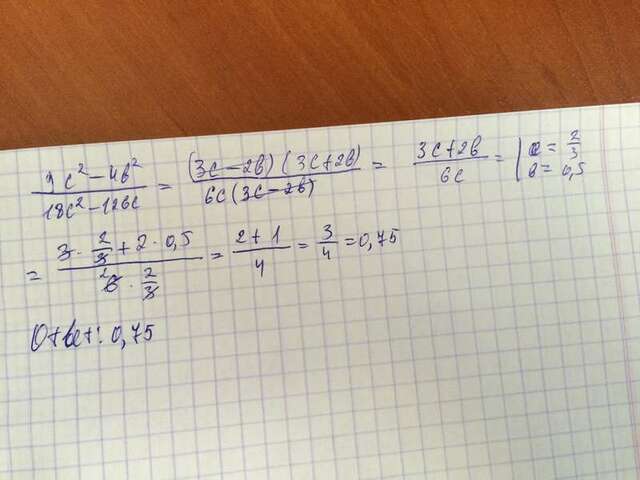 (9c² - 4b²)/(18c² - 12bc) = ((3c - 2b)(3c + 2b))/(6c(3c - 2b)) = (3c + 2b)/(6c) = | c = 2/3 b = 0,5
= (3 · 2/3 + 2 · 0,5)/(6 · 2/3) = (2 + 1)/4 = 3/4 = 0,75
Ответ: 0,75